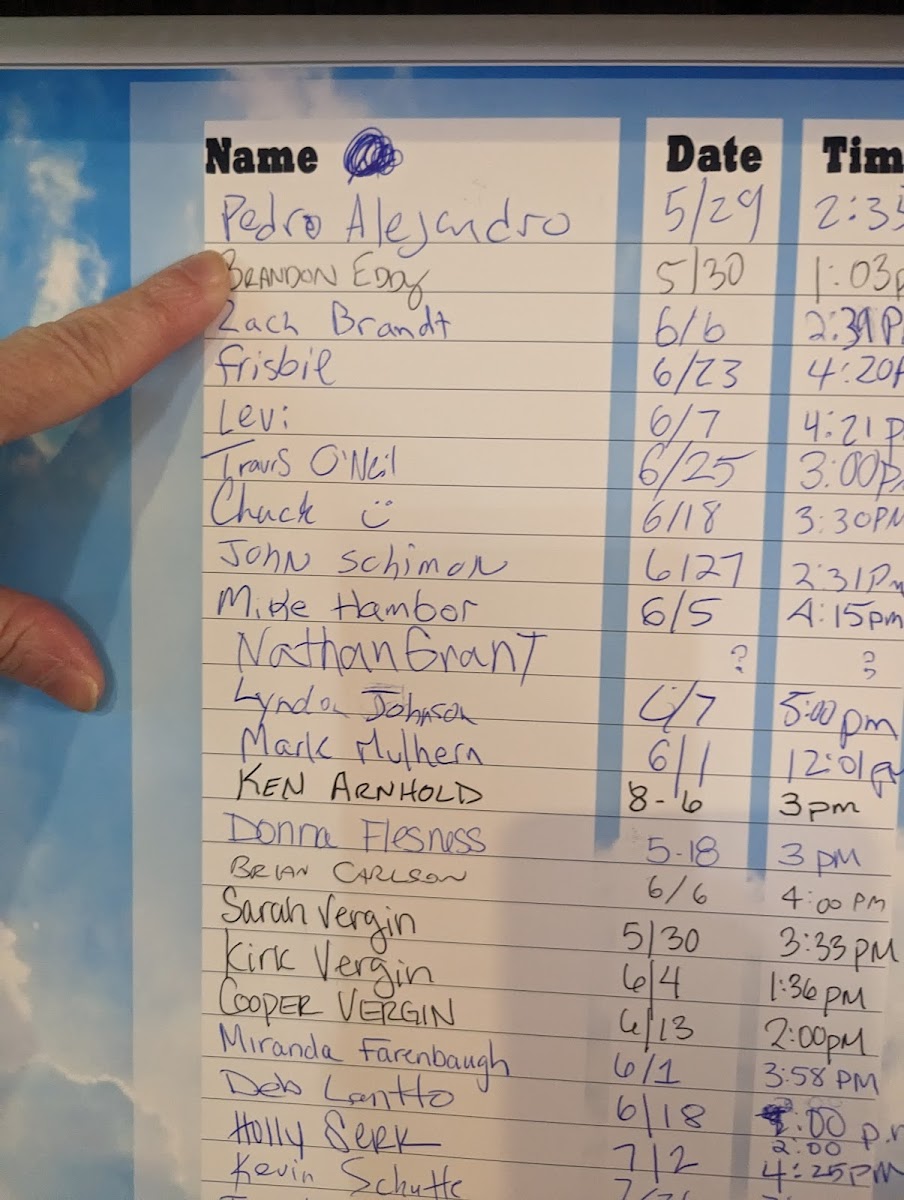 Name Date Tim
Pedro Alejandro 5/29 2:35
BRANDON EDDY 5/30 1:03p
Zach Brandt 6/6 2:39P
frisbie 6/23 4:20P
Levi 6/7 4:21 p
Travis O'Neil 6/25 3:00p
Chuck 6/18 3:30PM
JOHN schimon 6/27 2:31Pm
Mike Hambor 6/5 4:15pm
Nathan Grant ? ?
Lyndon Johnson 6/7 5:00 pm
Mark Mulhern 6/1 12:01
KEN ARNHOLD 8-6 3pm
Donna Flesness 5-18 3 PM
BRIAN CARLSON 6/6 4:00 PM
Sarah Vergin 5/30 3:33 PM
Kirk Vergin 6/4 1:36 PM
COOPER VERGIN 6/13 2:00pm
Miranda Farenbaugh 6/1 3:58 PM
Deb 6/18 :00 p.
2:00
Holly Serk 7/2 4:25PM
Kevin Schutte